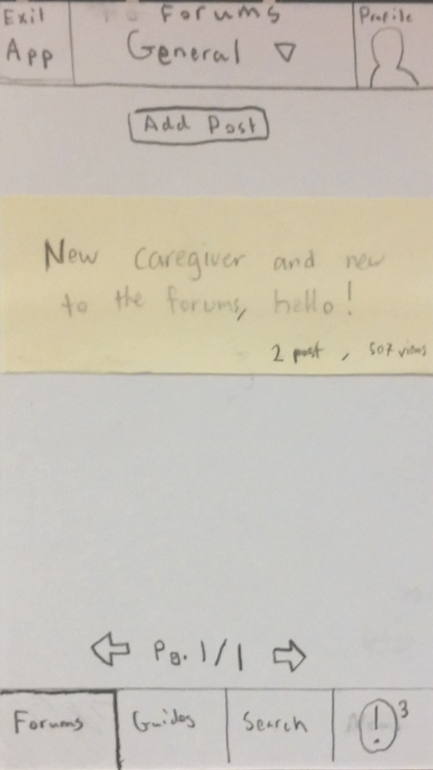 Exit
App
Forums
General
Profile
Add Post
New caregiver and new
to the forums, hello!
2 post, 507 views
Pg. 1/1
Forums
Guides
Search
! 3